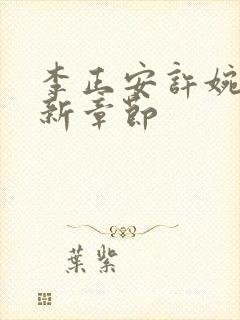 李正安許婉
新章節
葉紫